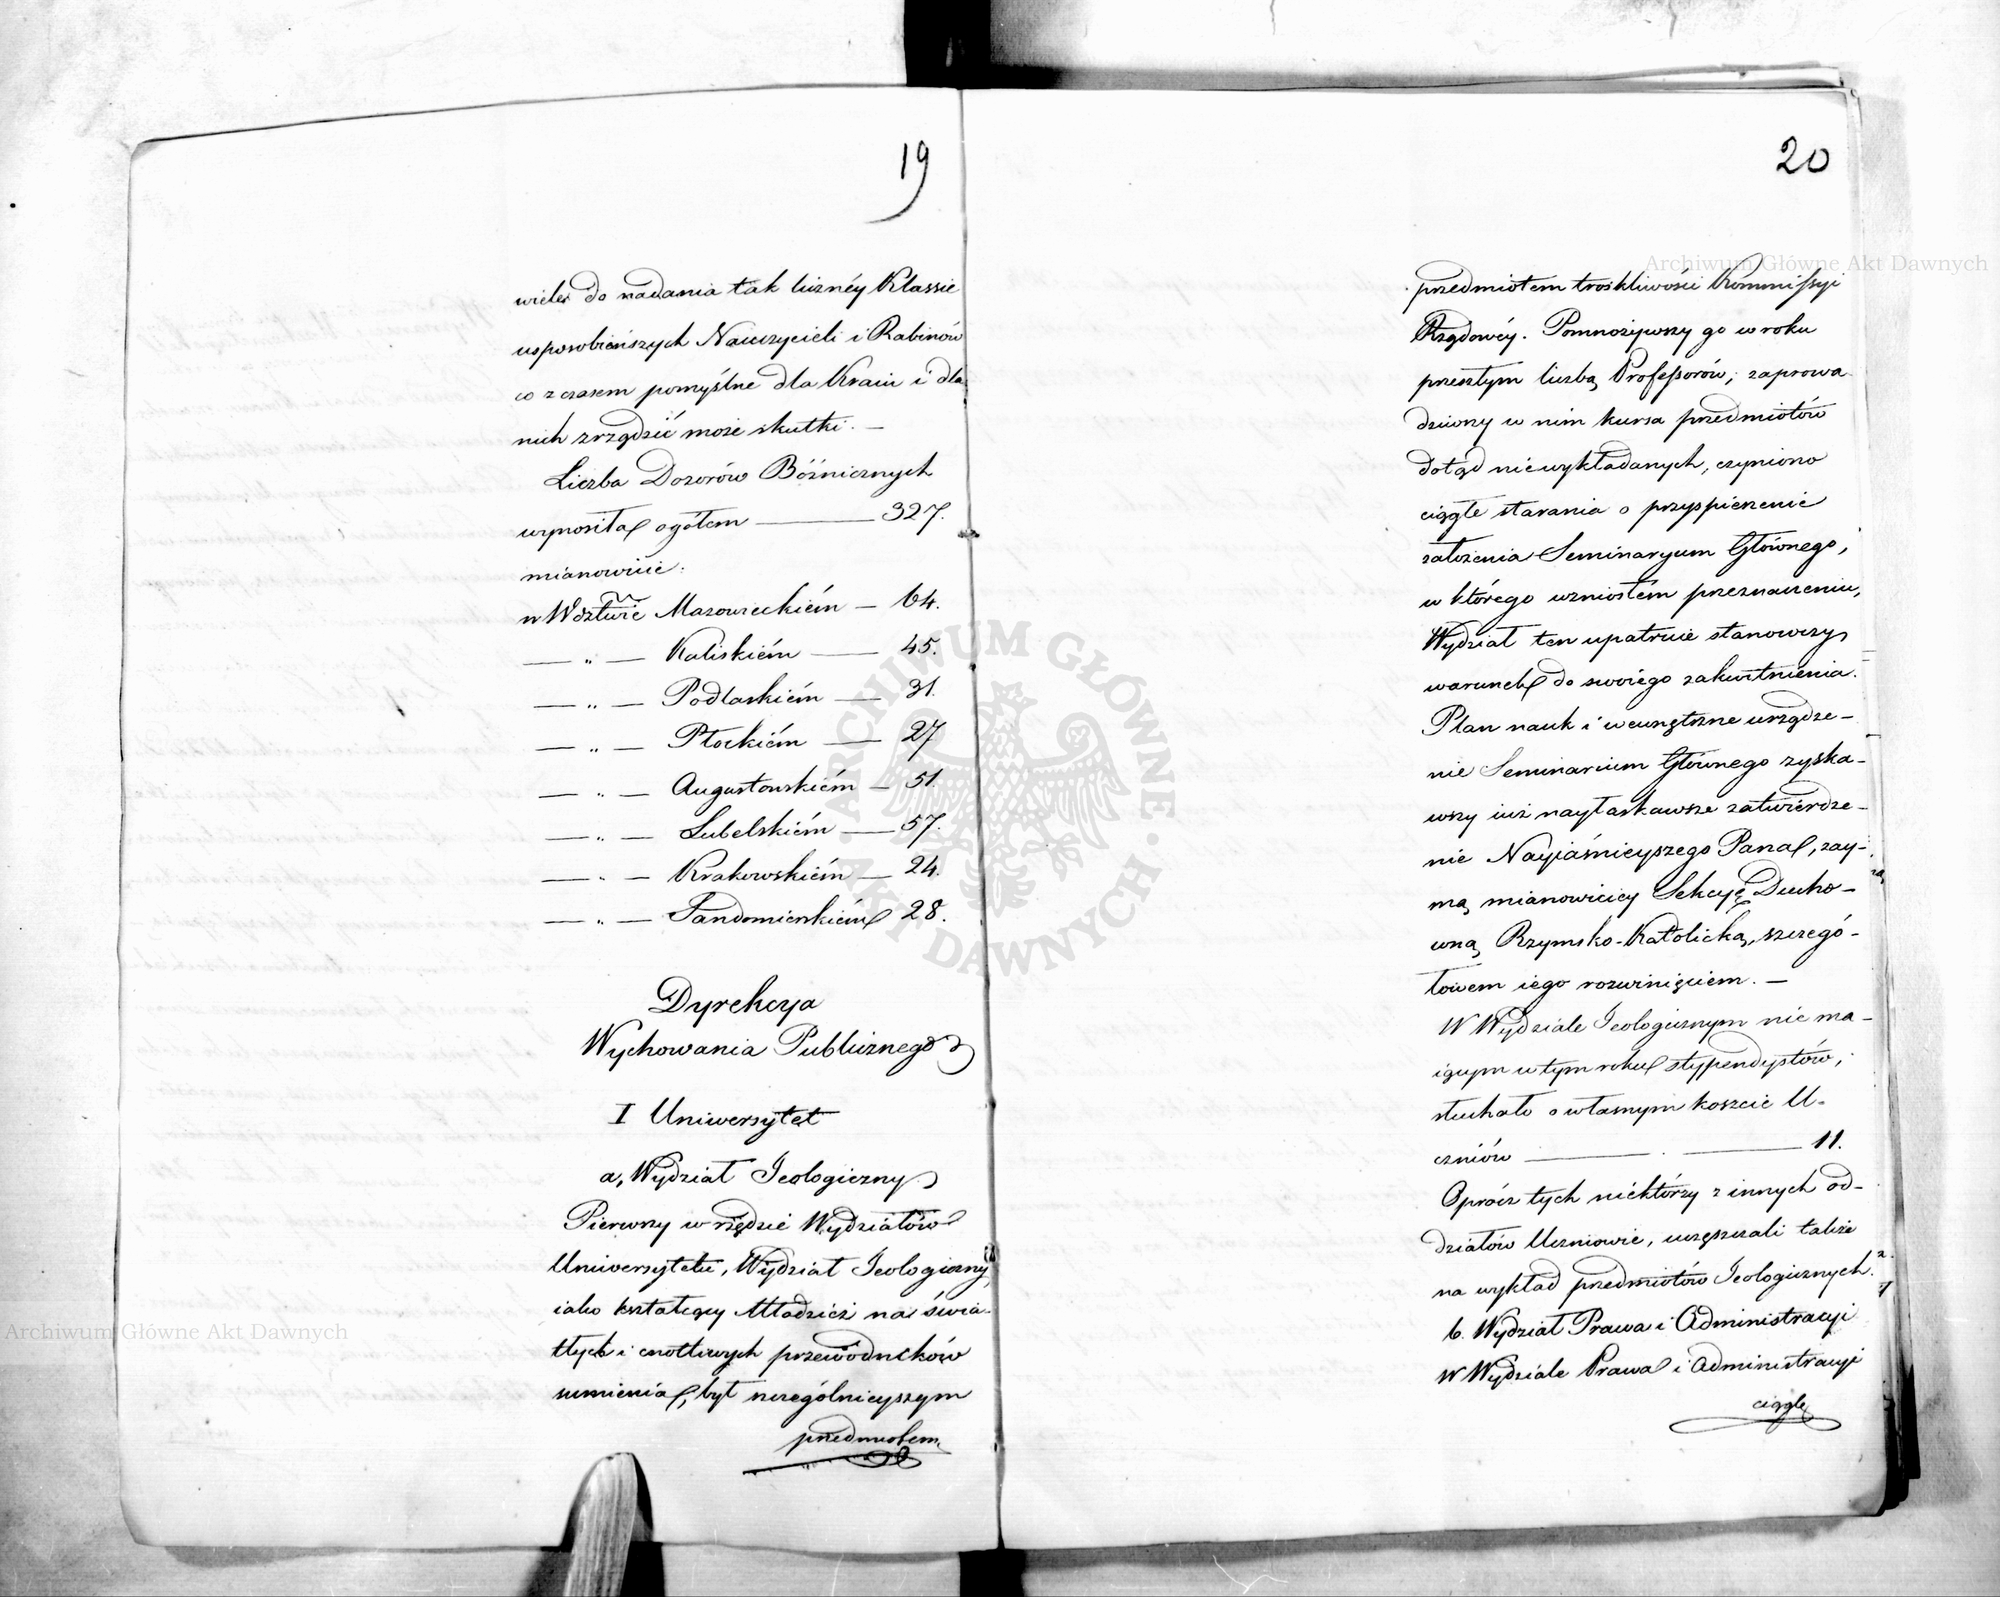 19
wieley do nadania tak liczney Klassie
usposobieńszych Nauczycieli i Rabinów
co z czasem pomyślne dla Kraiu i dla
nich zrządzić może skutki. —
Liczba Dozorów Bóżnicznych
wynosiła ogółem — 327.
mianowicie:
w Wdztwie Mazowieckiém — 64.
— „ — Kaliskiém — 45.
— „ — Podlaskiém — 31.
— „ — Płockiém — 27
— „ — Augustowskiém — 51.
— „ — Lubelskiém — 57.
— „ — Krakowskiém — 24.
— „ — Sandomierskiém 28.
Dyrekcya
Wychowania Publicznego
I Uniwersytet
a, Wydział Teologiczny
Pierwszy w rzędzie Wydziałów
Uniwersytetu, Wydział Teologiczny,
iako kształcący Młodzież na świa-
tłych i cnotliwych przewodników
sumienia, był szczególnieyszym
przedmiotem
20
przedmiotem troskliwości Kommissyi
Rządowéy. Pomnożywszy go w roku
przeszłym liczbą Professorów, zaprowa
dziwszy w nim kursa przedmiotów
dotąd niewykładanych, czyniono
ciągle starania o przyspieszenie
założenia Seminaryum Głównego,
w którego wzniosłém przeznaczeniu,
Wydział ten upatruie stanowczy
warunek do swoiego zakwitnienia.
Plan nauk i wewnętrzne urządze-
nie Seminarium Głównego zyska-
wszy iuż nayłaskawsze zatwierdze-
nie Nayiaśnieyszego Pana, zay-
ma mianowicicy Sekcyę Ducho-
wną Rzymsko-Katolicką, szczegó-
łowem iego rozwinięciem. —
W Wydziale Teologicznym nie ma-
iącym w tym roku stypendystów,
słuchało o własnym koszcie U-
czniów — . — 11.
Oprócz tych niektórzy z innych od-
działów Uczniowie, uczęszczali także
na wykład przedmiotów Teologicznych.
b. Wydział Prawa i Administracyi
W Wydziale Prawa i Administracyi
ciągle
Archiwum Główne Akt Dawnych
Archiwum Główne Akt Dawnych
ARCHIWUM GŁÓWNE AKT DAWNYCH